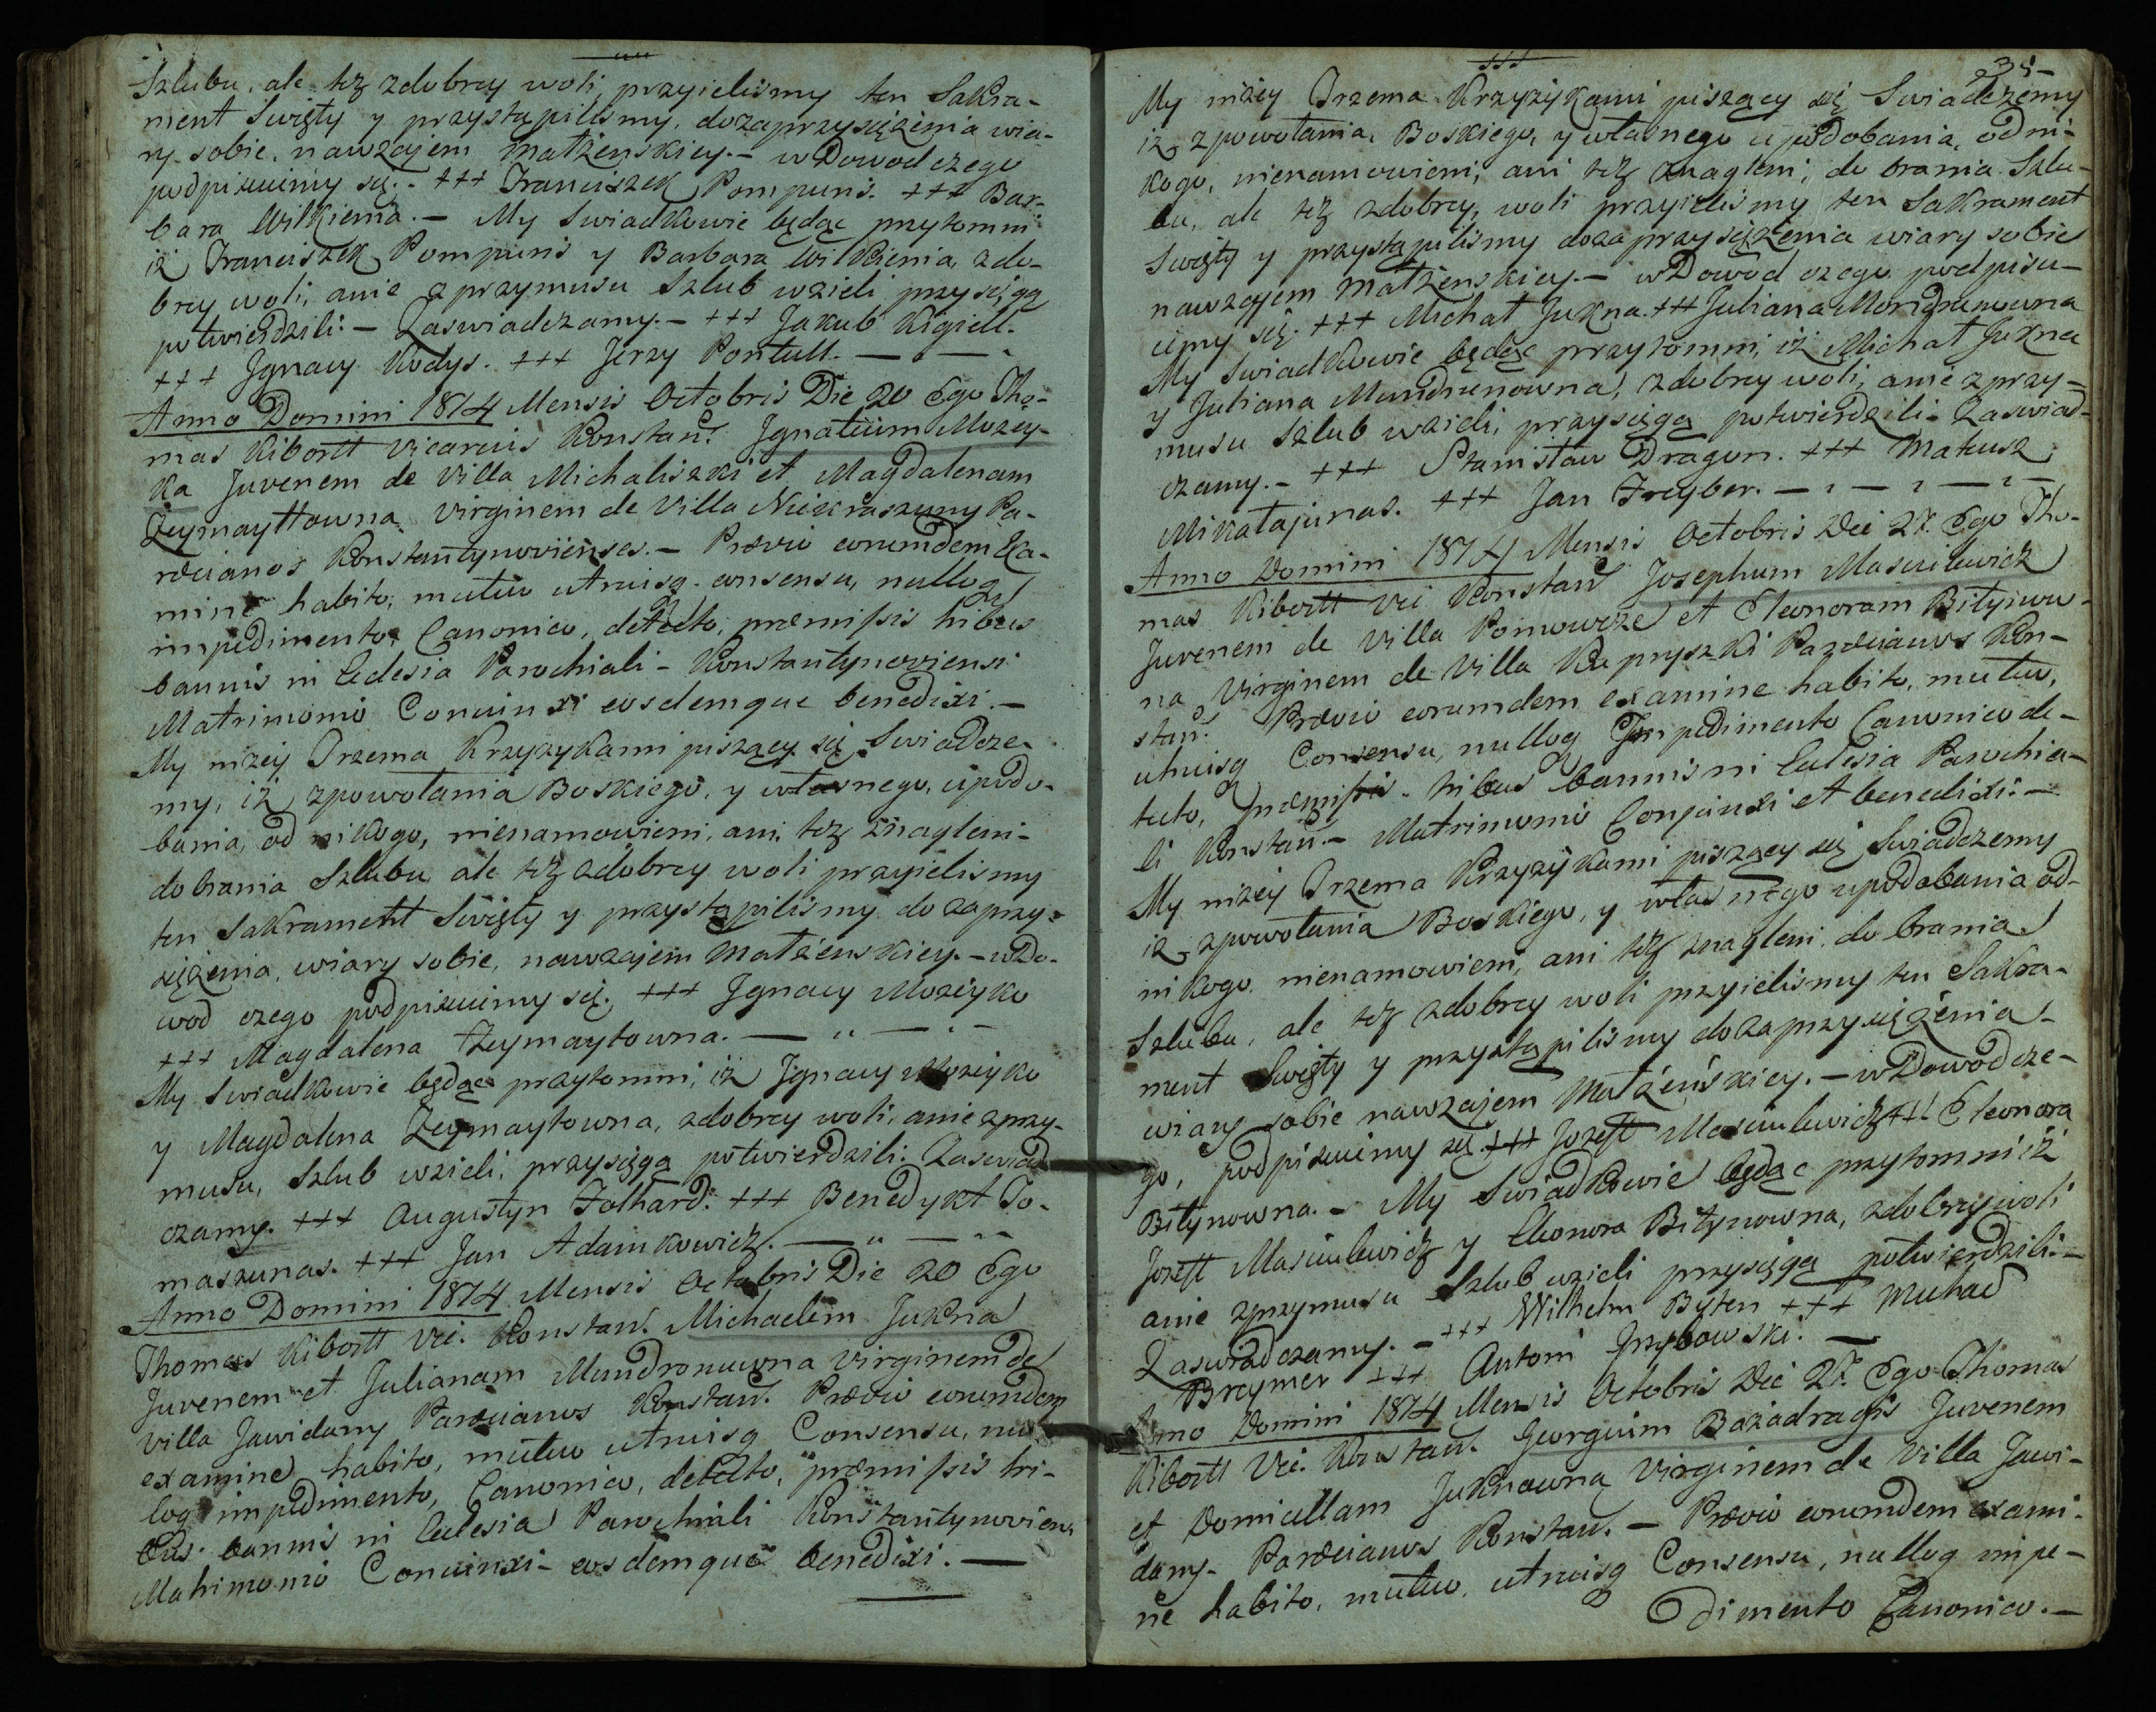 Szlubu, ale też zdobrey woli przyielismy ten Sakra-
ment Swięty y przystąpilismy, dozaprzysiężenia wia-
ry sobie nawzajem Małżenskiey.- wDowod czego
podpisuiemy się.- +++ Franciszek Pompunis. +++ Bar-
bara Wilkienia.- My Swiadkowie będąc przytomni
iż Franciszek Pompunis y Barbara Wilkienia, zdo-
brey woli, anie zprzymusu Szlub wzieli przysięgą
potwierdzili:- Zaswiadczamy.- +++ Jakub Rigiell.
+++ Jgnacy Kodys. +++ Jerzy Pontull.-
Anno Domini 1814 Mensis Octobris Die 20 Ego Tho-
mas Kibortt Vicarius Konstan. Jgnatium Mozey-
ka Juvenem de Villa Michaliszki et Magdalenam
Zeymayttowna Virginem de Villa Niekraszuny Pa-
rocianos Konstantynovienses.- Prævio eorumdem Exa-
mine habito, mutuo utriusq. consensu, nulloq
impedimento, Canonico, detecto, præmissis tribus
bannis in Eclesia Parochiali - Konstantynoviensi
Matrimonio Coniunxi eosdemque benedixi.-
My niżey Trzema Krzyzykami piszący się Swiadcze-
my, iż zpowołania Boskiego, y własnego, upodo-
bania, od nikogo, nienamowieni, ani też znagleni-
do brania Szlubu ale też zdobrey woli przyielismy
ten Sakrament Swięty y przystąpilismy do zaprzy-
siężenia, wiary sobie, nawzajem Małżenskiey.- wDo-
wod czego podpisuiemy się. +++ Jgnacy Mozeyko
+++ Magdalena Zeymaytowna.-
My Swiadkowie będąc przytomni, iż Jgnacy Mozeyko
y Magdalena Zeymaytowna, zdobrey woli, anie zprzy-
musu, Szlub wzieli, przysięgą potwierdzili. Zaswiad
czamy. +++ Augustyn Folhard. +++ Benedykt To-
maszunas. +++ Jan Adamkowicz.-
Anno Domini 1814 Mensis Octobris Die 20 Ego
Thomas Kibortt Vic. Konstan. Michaelem Jukna
Juvenem et Julianam Mundronowna Virginem de
Villa Jawidany Parocianos Konstan. Prævio eorumdem
examine habito, mutuo utriusq Consensu, nul
loq impedimento, Canonico, detecto, præmissis tri-
bus bannis in Eclesia Parochiali Konstantynoviens
Matrimonio Coniunxi- eosdemque benedixi.-
35
My niżey Trzema Krzyzykami piszący się Swiadczemy
iż zpowołania Boskiego, y własnego upodobania, od ni-
kogo, nienamowieni, ani też znagleni, do brania Szlu-
bu, ale też zdobrey, woli przyielismy ten Sakrament
Swięty y przystąpilismy dozaprzysiężenia wiary sobie
nawzajem Małżenskiey.- wDowod czego podpisu-
iemy się. +++ Michał Jukna. +++ Juliana Mondrunowna
My Swiadkowie będąc przytomni, iż Michał Jukna
y Juliana Mundrunowna, zdobrey woli, anie zprzy-
musu Szlub wzieli, przysięgą potwierdzili- Zaswiad-
czamy.- +++ Stanisław Dragun. +++ Mateusz
Mikałajunas. +++ Jan Freyber.-
Anno Domini 1814 Mensis Octobris Die 27. Ego Tho-
mas Kibortt Vic Konstan Josephum Masiulewicz
Juvenem de Villa Pomowcze et Eleonoram Bityniow-
na Virginem de Villa Kupryszki Parocianos Kon-
stan. Prævio eorumdem examine habito, mutuo,
utriusq Consensu, nulloq Jmpedimento Canonico de-
tecto, præmissis tribus bannis in Eclesia Parochia-
li Konstan.- Matrimonio Conjunxi et benedixi:-
My niżey Trzema Krzyzykami piszący się Swiadczemy
iż zpowołania Boskiego, y własnego upodobania, od-
nikogo nienamowieni, ani też znagleni do brania
Szlubu, ale też zdobrey woli przyielismy ten Sakra-
ment Swięty y przystąpilismy dozaprzysiężenia
wiary sobie nawzajem Małżeńskiey.- wDowod cze-
go, podpisuiemy się +++ Jozeff Masiulewicz +++ Eleonora
Bitynowna.- My Swiadkowie będąc przytomni iż
Jozeff Masiulewicz y Eleonora Bitynowna, zdobrey woli
anie zprzymusu Szlub wzieli przysięgą potwierdzili:-
Zaswiadczamy.- +++ Wilhelm Byten +++ Michał
Breymer +++ Antoni Grzybowski.-
Anno Domini 1814 Mensis Octobris Die 27. Ego Thomas
Kibortt Vic. Konstan. Georgium Bazadragis Juvenem
et Domicellam Juknowną Virginem de Villa Jawi-
dany- Parocianos Konstan.- Prævio eorumdem exami-
ne habito, mutuo, utriusq Consensu, nulloq impe-
dimento Canonico.-